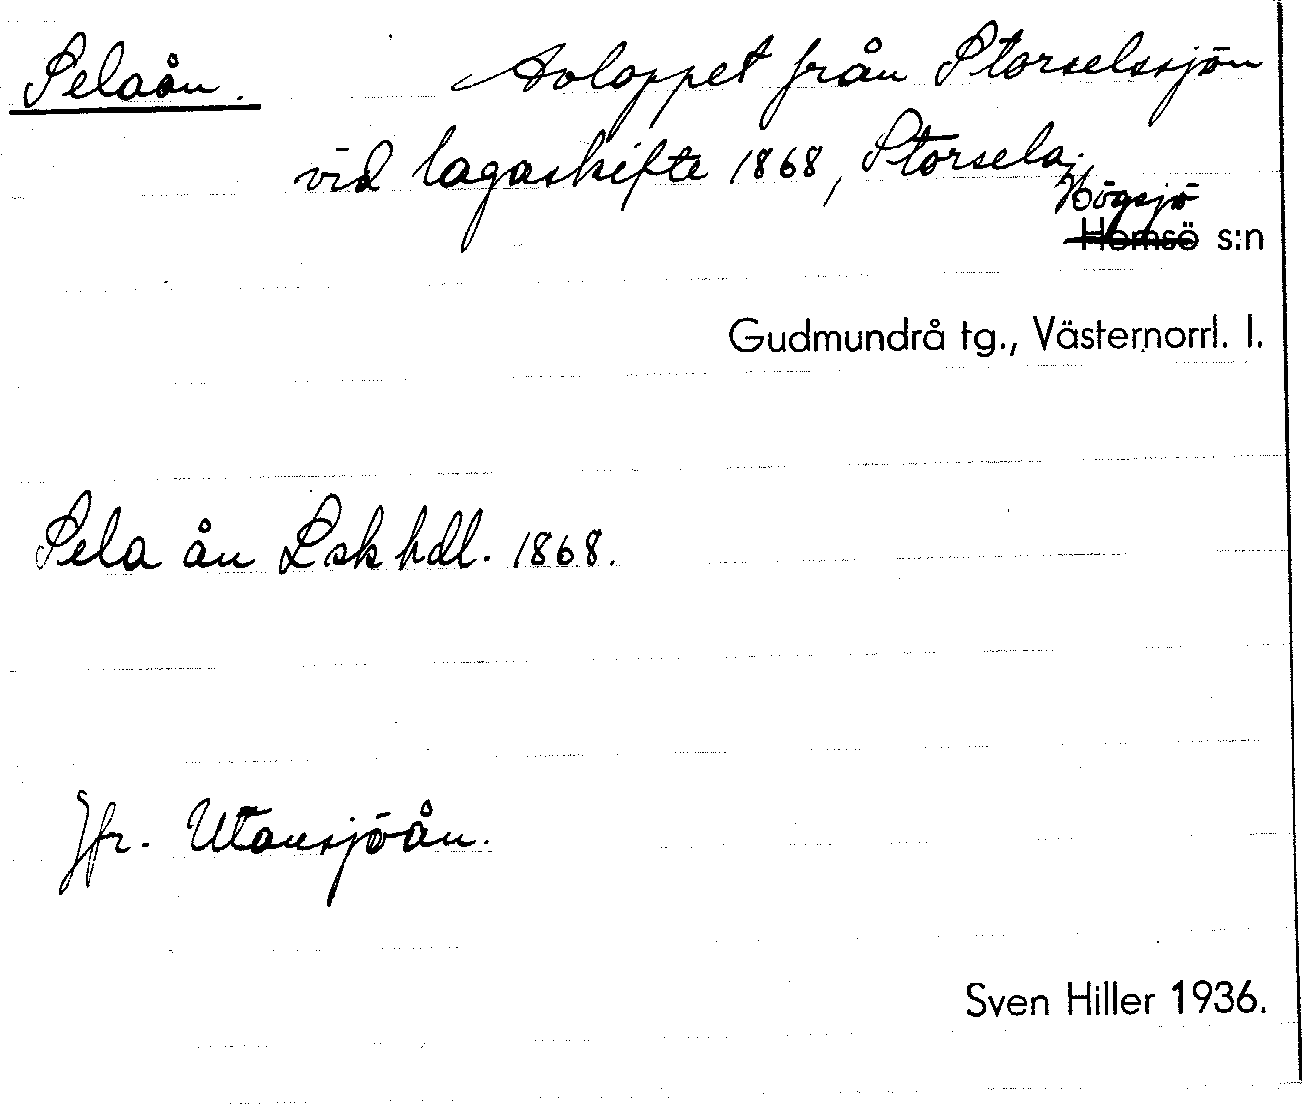 Selaån. Avloppet från Storselssjön
vid lagaskifte 1868, Storsela,
Högsjö
Hemsö s:n
Gudmundrå tg., Västernorrl. l.
Sela ån Lsk hdl. 1868.
Jfr. Utansjöån.
Sven Hiller 1936.